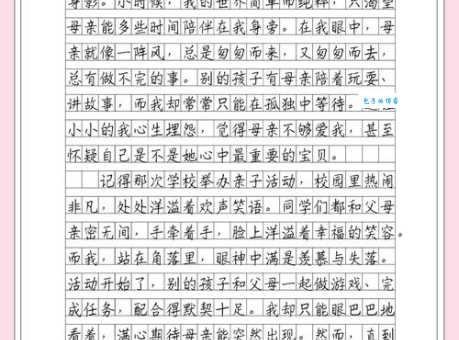 身影。小时候，我的世界简单而纯粹，只渴望
母亲能多些时间陪伴在我身旁。在我眼中，母
亲就像一阵风，总是匆匆而来，又匆匆而去，
总有做不完的事。别的孩子有母亲陪着玩耍、
讲故事，而我却常常只能在孤独中等待。
小小的我心生埋怨，觉得母亲不够爱我，甚至
怀疑自己是不是她心中最重要的宝贝。
记得那次学校举办亲子活动，校园里热闹
非凡，处处洋溢着欢声笑语。同学们都和父母
亲密无间，手牵着手，脸上洋溢着幸福的笑容。
而我，站在角落里，眼神中满是羡慕与失落。
活动开始了，别的孩子和父母一起做游戏、完
成任务，配合得默契十足。我却只能眼巴巴地
看着，满心期待母亲能突然出现。然而，直到